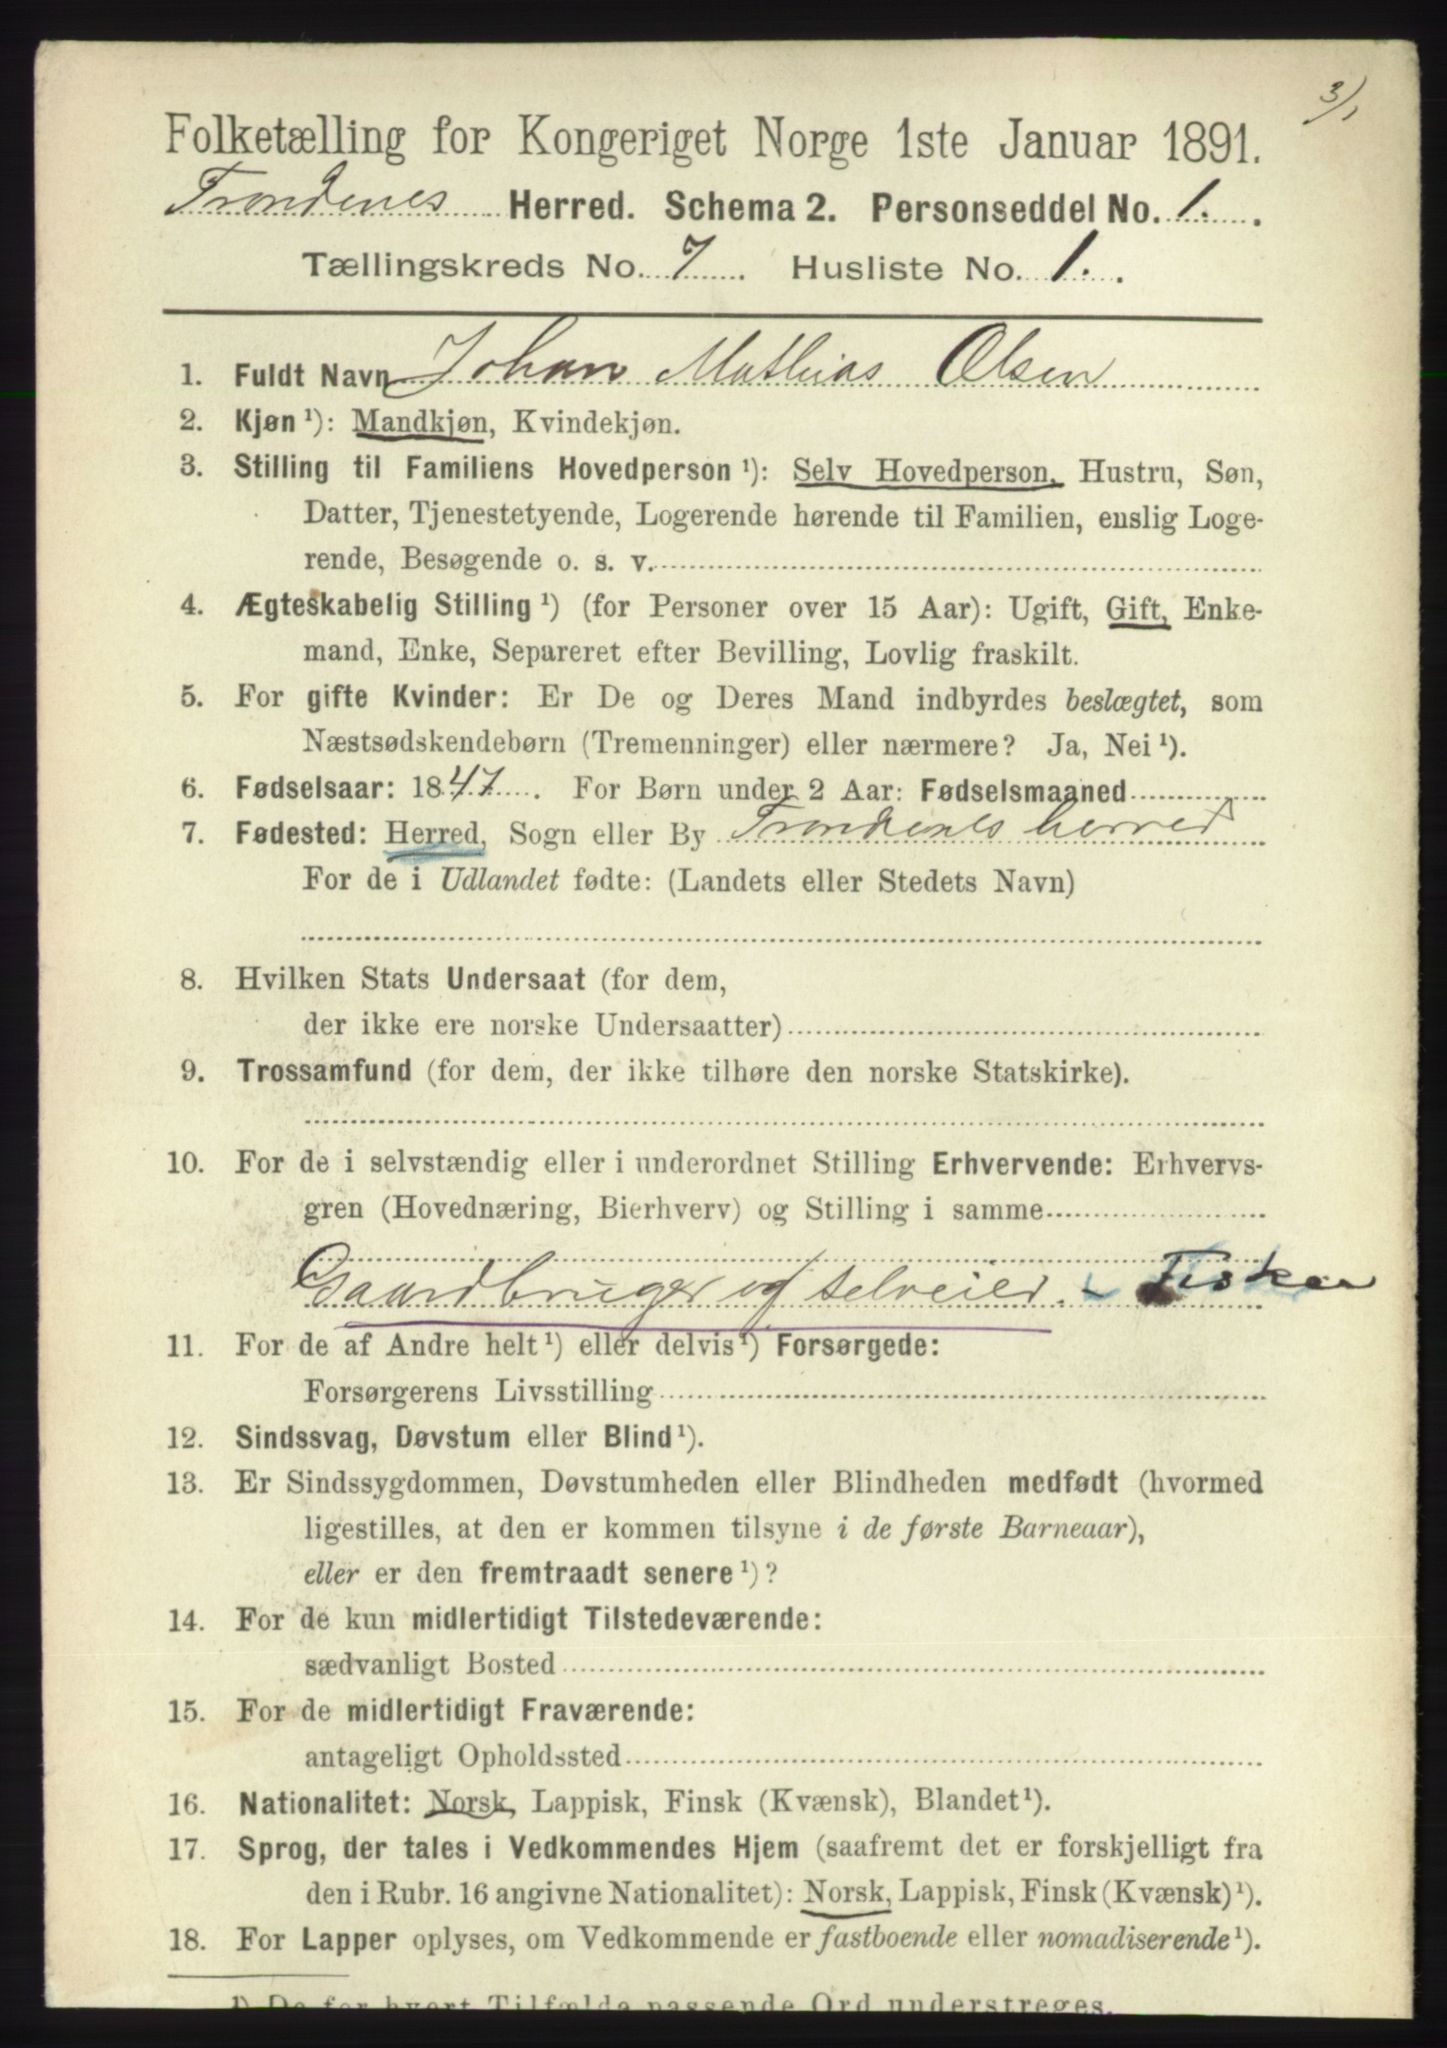 3/1
Folketælling for Kongeriget Norge 1ste Januar 1891.
Trondenes Herred. Schema 2. Personseddel No. 1.
Tællingskreds No. 7. Husliste No. 1.
1. Fuldt Navn Johan Mathias Olsen
2. Kjøn¹): Mandkjøn, Kvindekjøn.
3. Stilling til Familiens Hovedperson¹): Selv Hovedperson, Hustru, Søn,
Datter, Tjenestetyende, Logerende hørende til Familien, enslig Loge-
rende, Besøgende o. s. v.
4. Ægteskabelig Stilling¹) (for Personer over 15 Aar): Ugift, Gift, Enke-
mand, Enke, Separeret efter Bevilling, Lovlig fraskilt.
5. For gifte Kvinder: Er De og Deres Mand indbyrdes beslægtet, som
Næstsødskendebørn (Tremenninger) eller nærmere? Ja, Nei¹).
6. Fødselsaar: 1847. For Børn under 2 Aar: Fødselsmaaned
7. Fødested: Herred, Sogn eller By Trondenes herred
For de i Udlandet fødte: (Landets eller Stedets Navn)
8. Hvilken Stats Undersaat (for dem,
der ikke ere norske Undersaatter)
9. Trossamfund (for dem, der ikke tilhøre den norske Statskirke).
10. For de i selvstændig eller i underordnet Stilling Erhvervende: Erhvervs-
gren (Hovednæring, Bierhverv) og Stilling i samme
Gaardbruger og selveier. - Fisker
11. For de af Andre helt¹) eller delvis¹) Forsørgede:
Forsørgerens Livsstilling
12. Sindssvag, Døvstum eller Blind¹).
13. Er Sindssygdommen, Døvstumheden eller Blindheden medfødt (hvormed
ligestilles, at den er kommen tilsyne i de første Barneaar),
eller er den fremtraadt senere¹)?
14. For de kun midlertidigt Tilstedeværende:
sædvanligt Bosted
15. For de midlertidigt Fraværende:
antageligt Opholdssted
16. Nationalitet: Norsk, Lappisk, Finsk (Kvænsk), Blandet¹).
17. Sprog, der tales i Vedkommendes Hjem (saafremt det er forskjelligt fra
den i Rubr. 16 angivne Nationalitet): Norsk, Lappisk, Finsk (Kvænsk)¹).
18. For Lapper oplyses, om Vedkommende er fastboende eller nomadiserende¹).
¹) De for hvert Tilfælde passende Ord understreges.